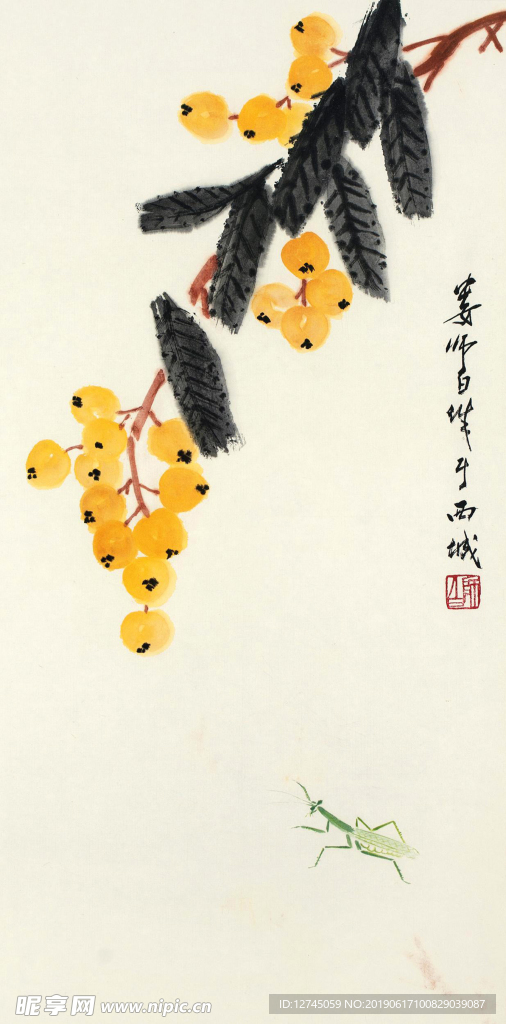 娄师白作于西城
师白
昵享网 www.nipic.cn
ID:12745059 NO:20190617100829039087